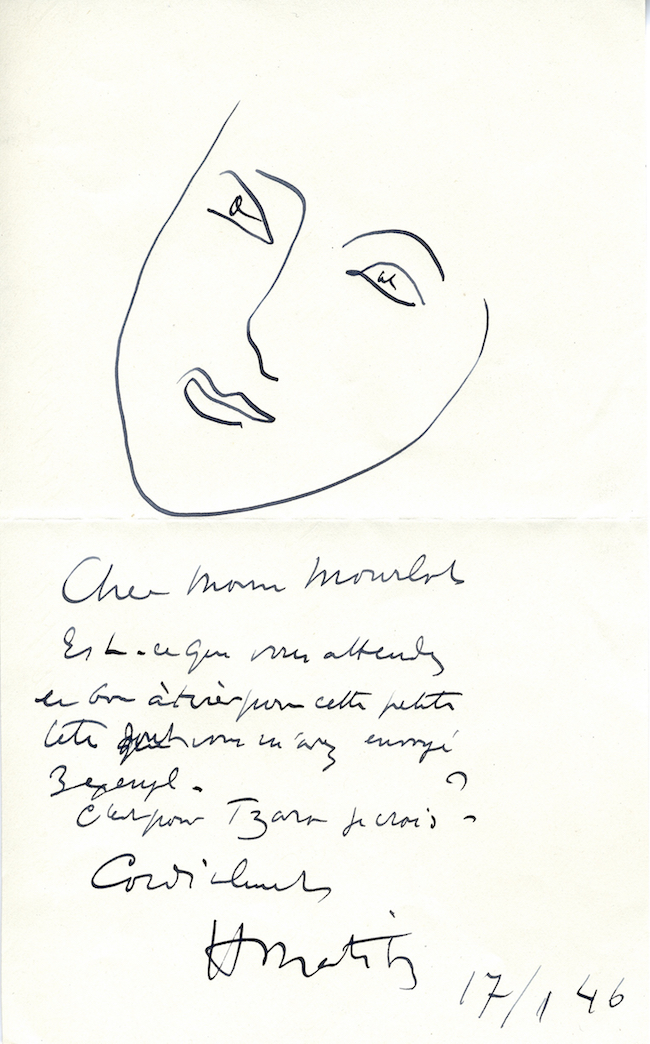 Cher Monsr Mourlot
Est-ce que vous attendez
le bon à tirer pour cette petite
tête dont vous m'avez envoyé
3 exempl. ?
C'est pour Tzara je crois -
Cordialement
H Matisse
17/1 46